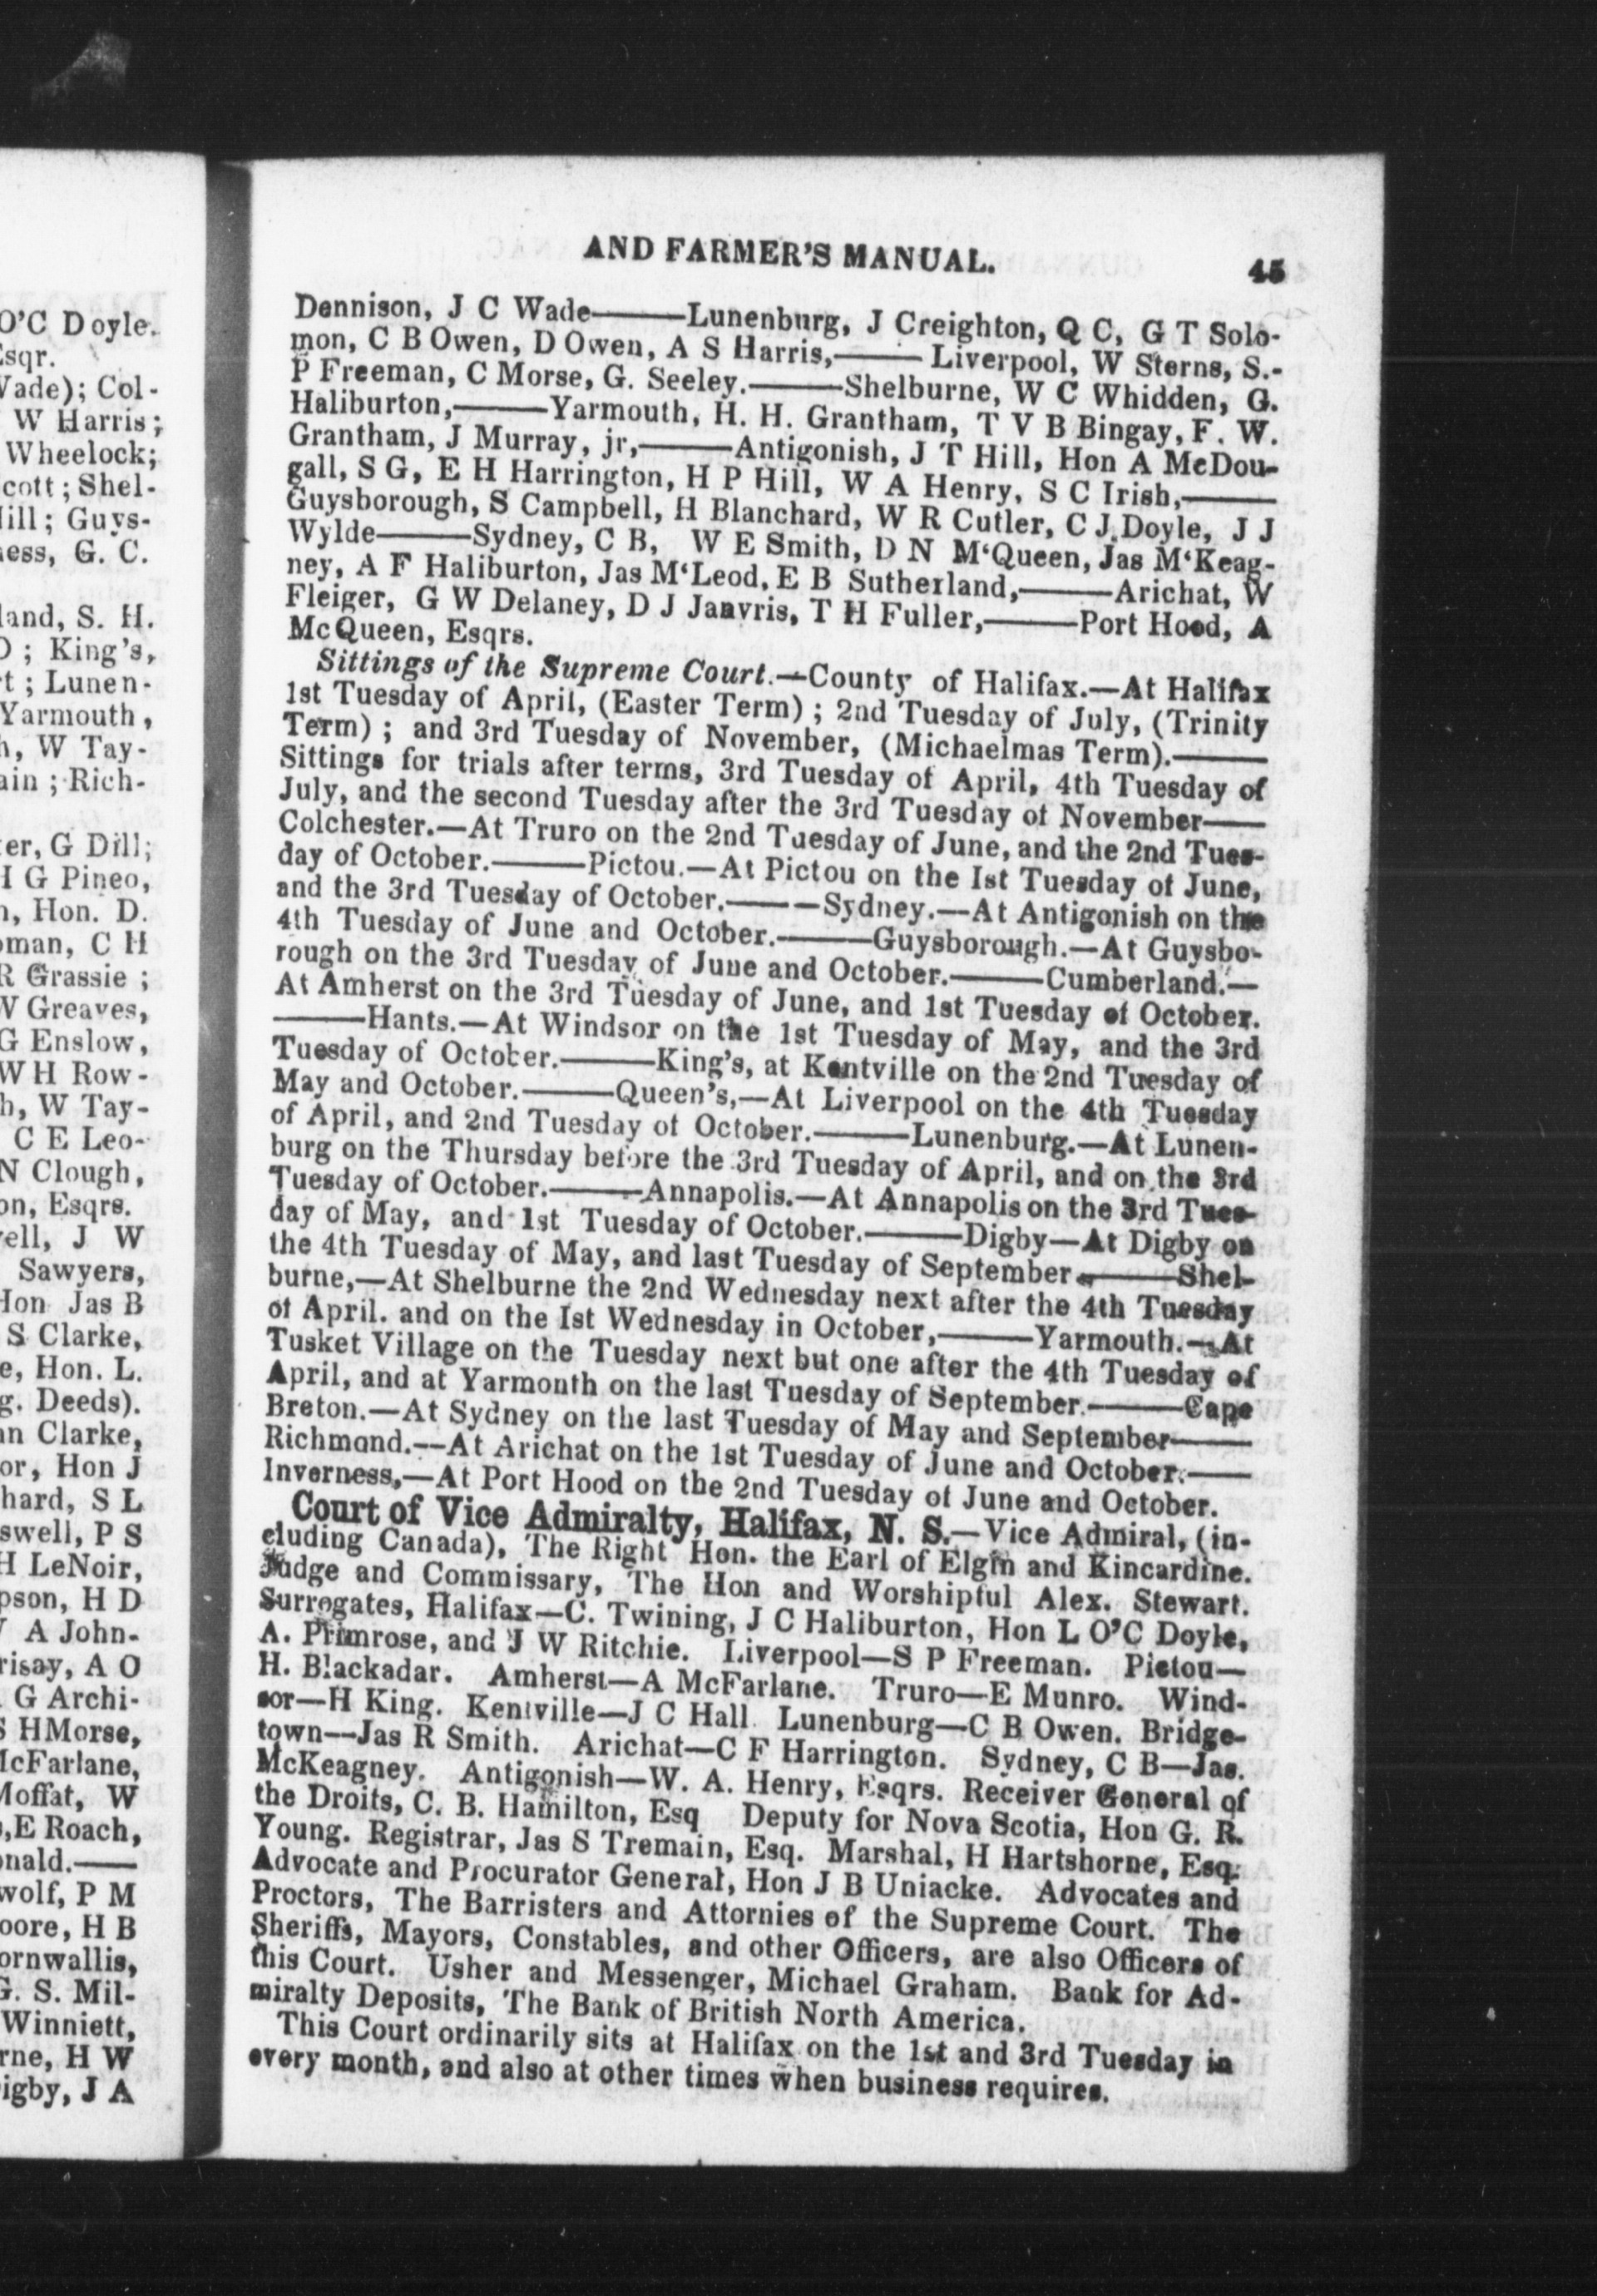 O'C Doyle.
Esqr.
Wade); Col-
W Harris;
Wheelock;
cott; Shel-
Hill; Guys-
ness, G. C.
land, S. H.
D; King's,
rt; Lunen-
Yarmouth,
h, W Tay-
ain; Rich-
ter, G Dill;
H G Pineo,
n, Hon. D.
oman, C H
R Grassie;
W Greaves,
G Enslow,
W H Row-
h, W Tay-
C E Leo-
N Clough,
on, Esqrs.
ell, J W
Sawyers,
Hon Jas B
S Clarke,
e, Hon. L.
g. Deeds).
an Clarke,
or, Hon J
hard, S L
swell, P S
H LeNoir,
pson, H D
W A John-
risay, A O
G Archi-
S HMorse,
McFarlane,
Moffat, W
,E Roach,
onald.——
wolf, P M
oore, H B
ornwallis,
G. S. Mil-
Winniett,
rne, H W
igby, J A
AND FARMER'S MANUAL. 45
Dennison, J C Wade———Lunenburg, J Creighton, Q C, G T Solo-
mon, C B Owen, D Owen, A S Harris,——— Liverpool, W Sterns, S.-
P Freeman, C Morse, G. Seeley.———Shelburne, W C Whidden, G.
Haliburton,———Yarmouth, H. H. Grantham, T V B Bingay, F. W.
Grantham, J Murray, jr,———Antigonish, J T Hill, Hon A McDou-
gall, S G, E H Harrington, H P Hill, W A Henry, S C Irish,———
Guysborough, S Campbell, H Blanchard, W R Cutler, C J Doyle, J J
Wylde———Sydney, C B, W E Smith, D N M'Queen, Jas M'Keag-
ney, A F Haliburton, Jas M'Leod, E B Sutherland,———Arichat, W
Fleiger, G W Delaney, D J Janvris, T H Fuller,———Port Hood, A
McQueen, Esqrs.
Sittings of the Supreme Court.—County of Halifax.—At Halifax
1st Tuesday of April, (Easter Term); 2nd Tuesday of July, (Trinity
Term); and 3rd Tuesday of November, (Michaelmas Term).———
Sittings for trials after terms, 3rd Tuesday of April, 4th Tuesday of
July, and the second Tuesday after the 3rd Tuesday of November——
Colchester.—At Truro on the 2nd Tuesday of June, and the 2nd Tues-
day of October.———Pictou.—At Pictou on the Ist Tuesday of June,
and the 3rd Tuesday of October.———Sydney.—At Antigonish on the
4th Tuesday of June and October.———Guysborough.—At Guysbo-
rough on the 3rd Tuesday of June and October.———Cumberland.—
At Amherst on the 3rd Tuesday of June, and 1st Tuesday of October.
———Hants.—At Windsor on the 1st Tuesday of May, and the 3rd
Tuesday of October.———King's, at Kentville on the 2nd Tuesday of
May and October.———Queen's,—At Liverpool on the 4th Tuesday
of April, and 2nd Tuesday of October.———Lunenburg.—At Lunen-
burg on the Thursday before the 3rd Tuesday of April, and on the 3rd
Tuesday of October.———Annapolis.—At Annapolis on the 3rd Tues-
day of May, and 1st Tuesday of October.———Digby—At Digby on
the 4th Tuesday of May, and last Tuesday of September.———Shel-
burne,—At Shelburne the 2nd Wednesday next after the 4th Tuesday
of April. and on the Ist Wednesday in October,———Yarmouth.—At
Tusket Village on the Tuesday next but one after the 4th Tuesday of
April, and at Yarmouth on the last Tuesday of September.———Cape
Breton.—At Sydney on the last Tuesday of May and September———
Richmond.—At Arichat on the 1st Tuesday of June and October.——
Inverness,—At Port Hood on the 2nd Tuesday of June and October.
Court of Vice Admiralty, Halifax, N. S.—Vice Admiral, (in-
cluding Canada), The Right Hon. the Earl of Elgin and Kincardine.
Judge and Commissary, The Hon and Worshipful Alex. Stewart.
Surrogates, Halifax—C. Twining, J C Haliburton, Hon L O'C Doyle,
A. Primrose, and J W Ritchie. Liverpool—S P Freeman. Pictou—
H. Blackadar. Amherst—A McFarlane. Truro—E Munro. Wind-
sor—H King. Kentville—J C Hall. Lunenburg—C B Owen. Bridge-
town—Jas R Smith. Arichat—C F Harrington. Sydney, C B—Jas.
McKeagney. Antigonish—W. A. Henry, Esqrs. Receiver General of
the Droits, C. B. Hamilton, Esq Deputy for Nova Scotia, Hon G. R.
Young. Registrar, Jas S Tremain, Esq. Marshal, H Hartshorne, Esq.
Advocate and Procurator General, Hon J B Uniacke. Advocates and
Proctors, The Barristers and Attornies of the Supreme Court. The
Sheriffs, Mayors, Constables, and other Officers, are also Officers of
this Court. Usher and Messenger, Michael Graham. Bank for Ad-
miralty Deposits, The Bank of British North America.
This Court ordinarily sits at Halifax on the 1st and 3rd Tuesday in
every month, and also at other times when business requires.